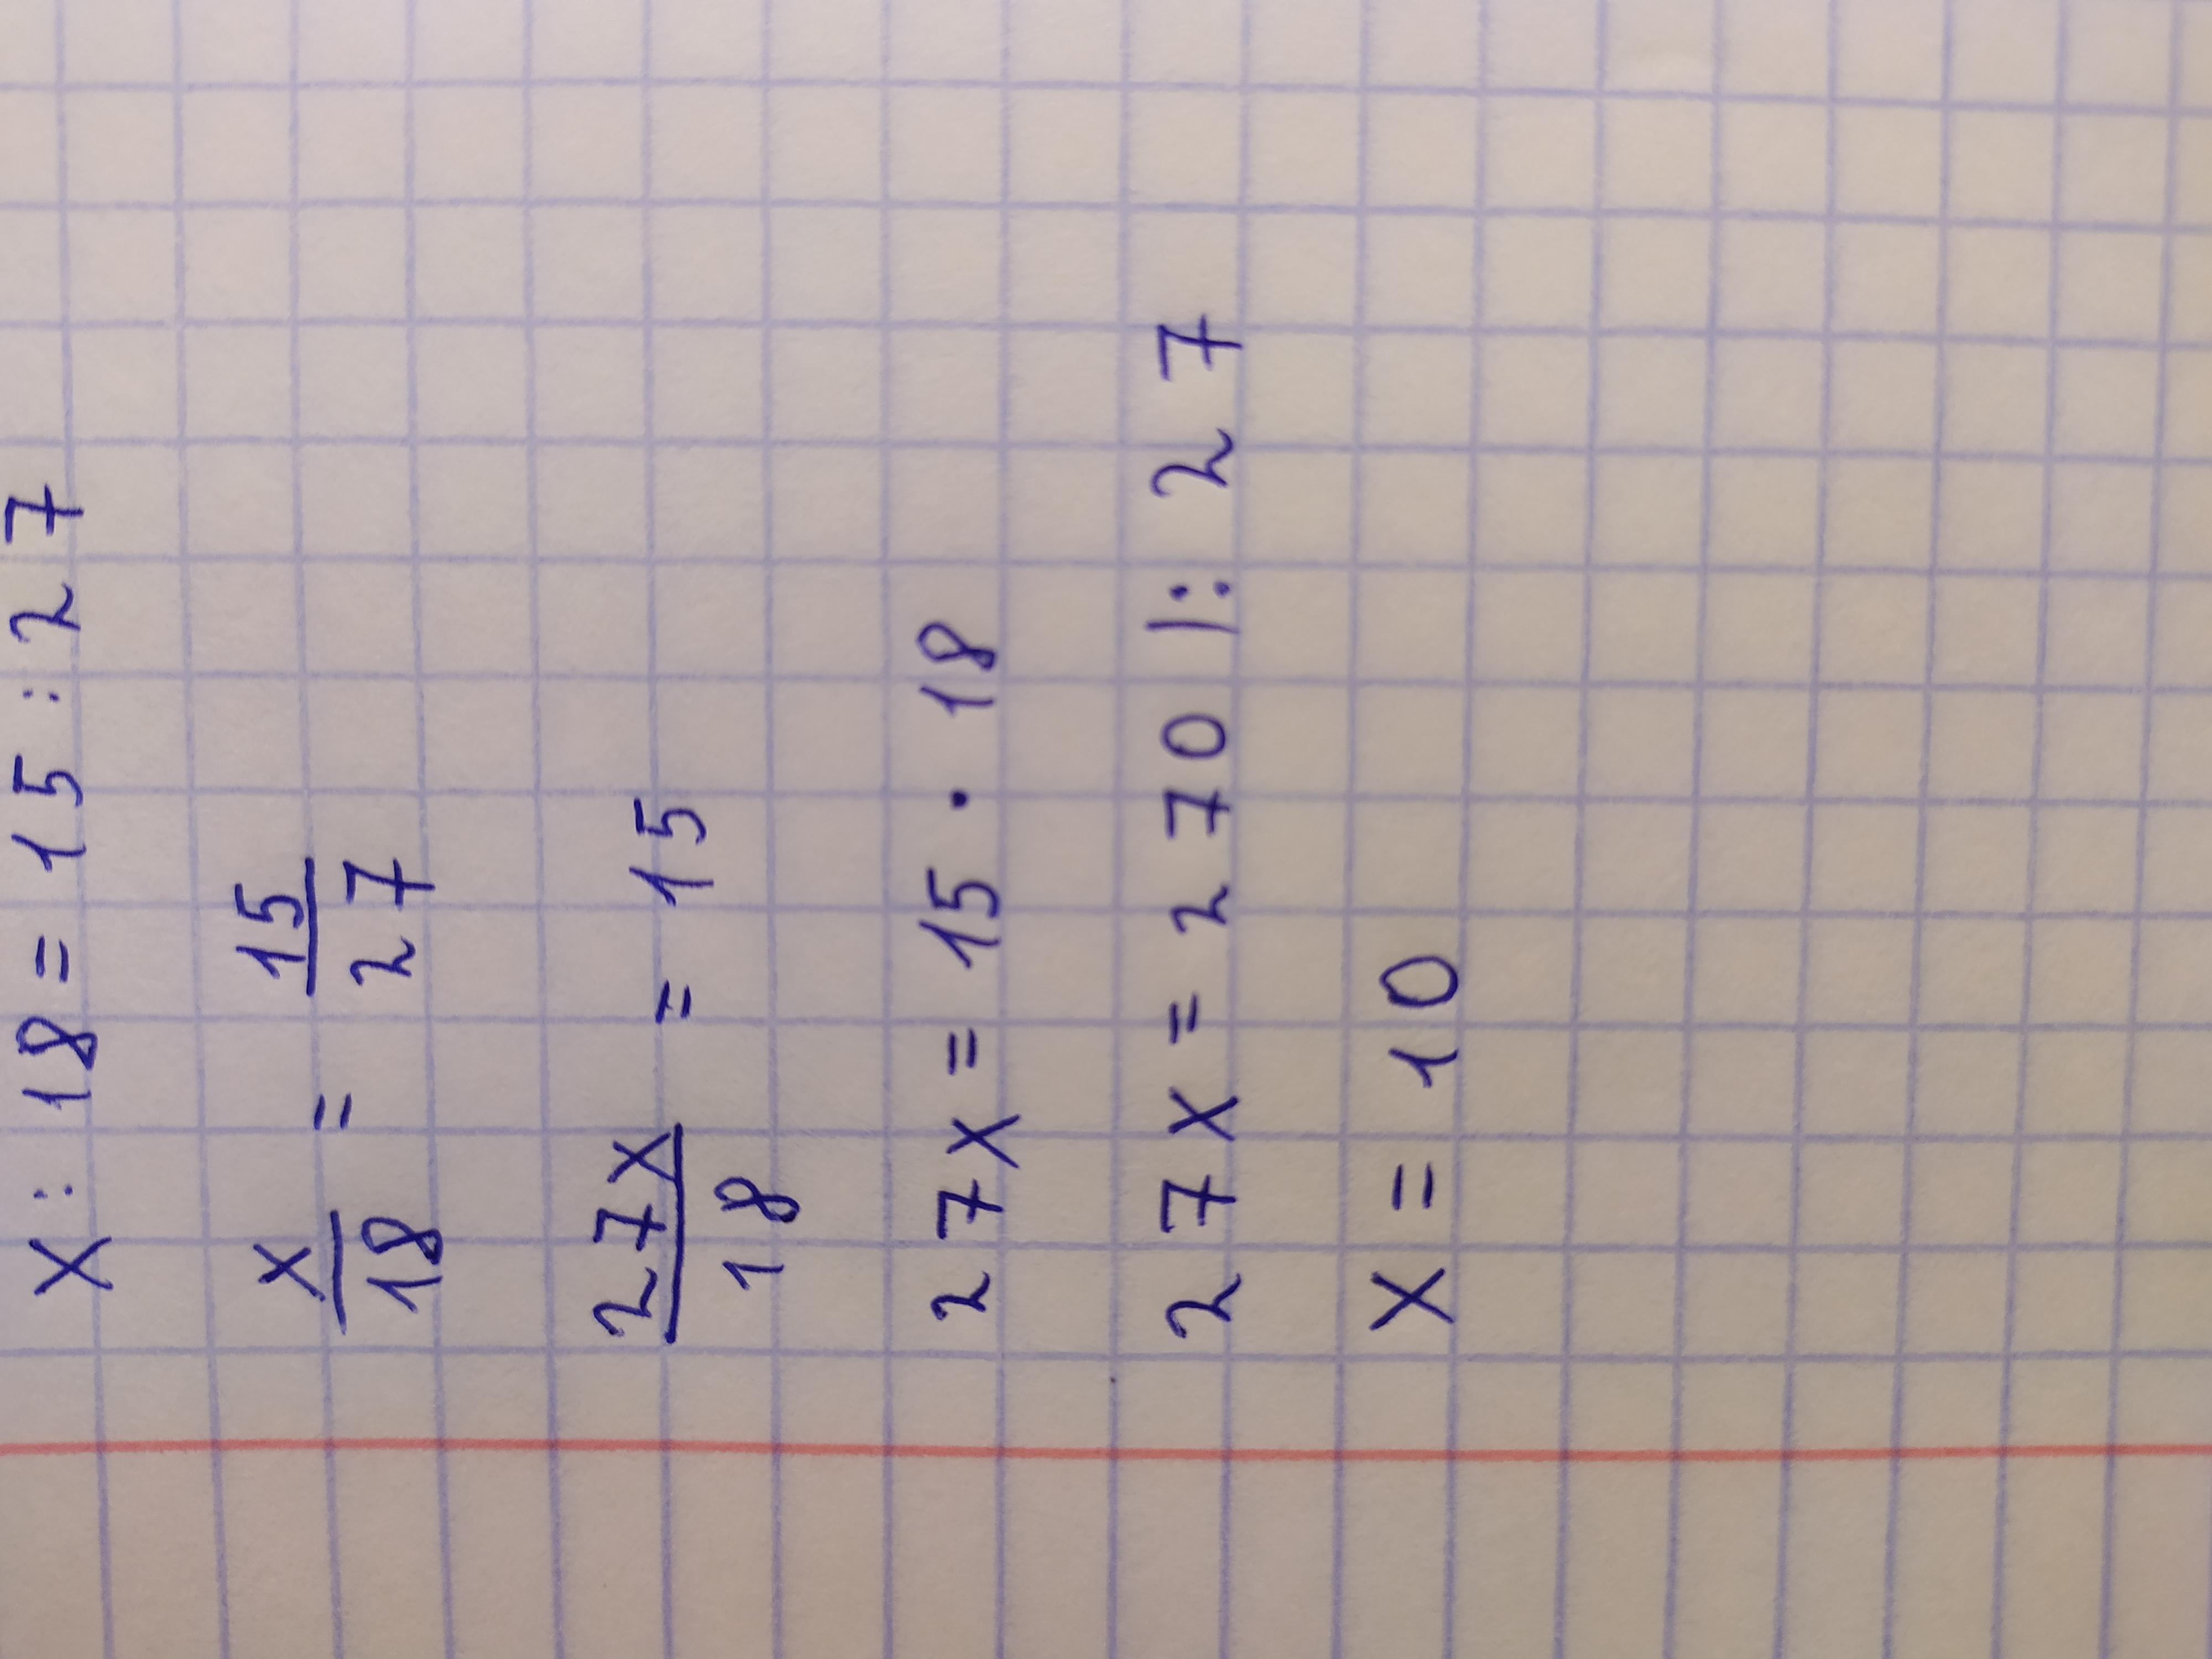 x : 18 = 15 : 27
x/18 = 15/27
27x/18 = 15
27x = 15 · 18
27x = 270 |: 27
x = 10